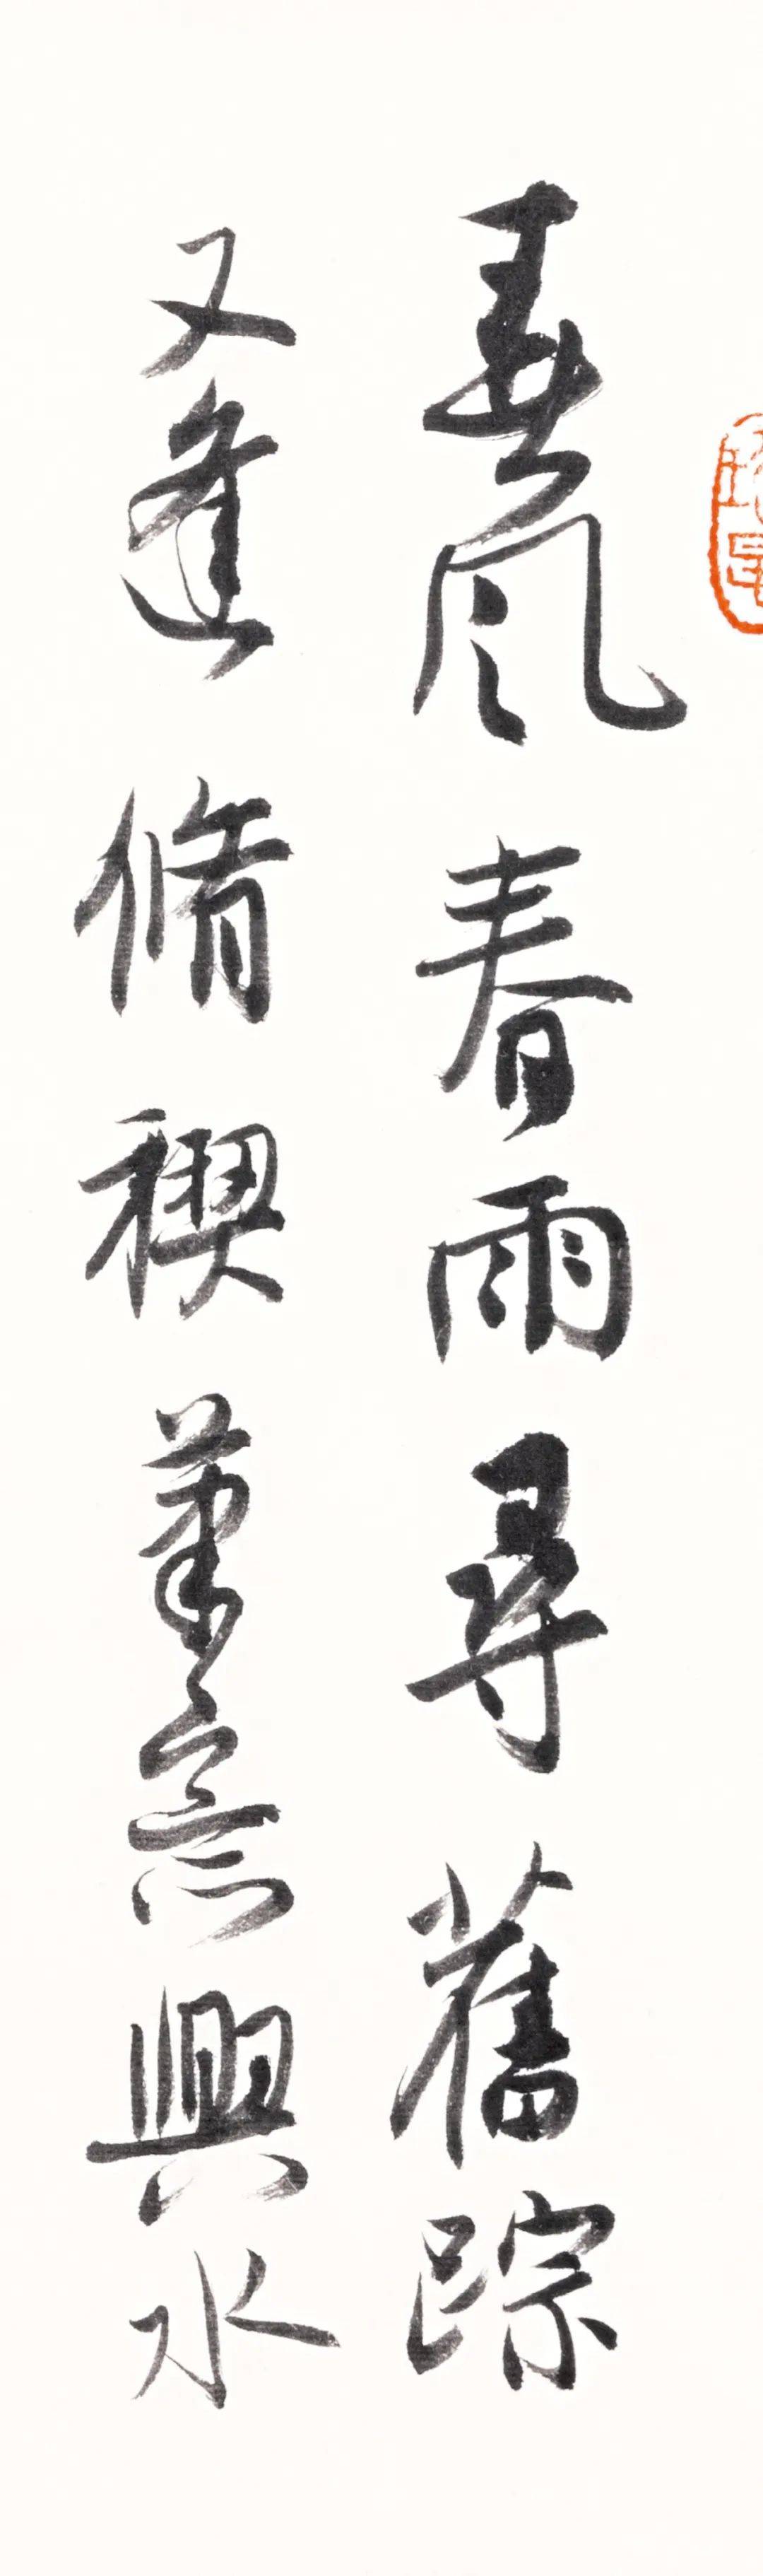 春風春雨尋舊踪
又逢脩禊筆意興水